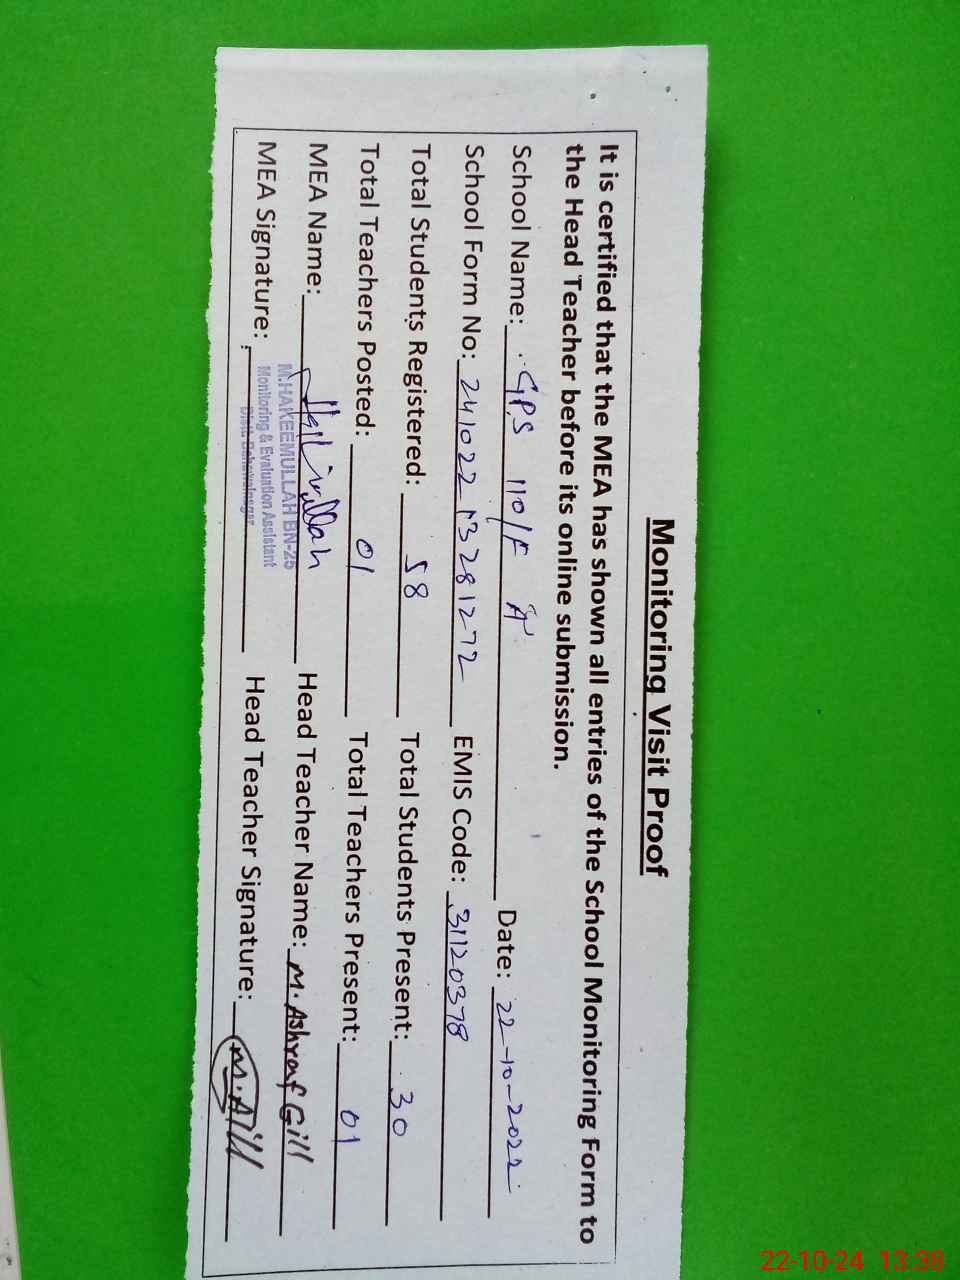 Monitoring Visit Proof
It is certified that the MEA has shown all entries of the School Monitoring Form to
the Head Teacher before its online submission.
School Name: GPS 110/F A Date: 22-10-2022
School Form No: 241022 13281272 EMIS Code: 31120378
Total Students Registered: 58 Total Students Present: 30
Total Teachers Posted: 01 Total Teachers Present: 01
MEA Name: Head Teacher Name: M. Ashraf Gill
M.HAKEEMULLAH BN-25
MEA Signature: Monitoring & Evaluation Assistant Head Teacher Signature: M. A Gill
Distt. Bahawalnagar
22-10-24 13.38